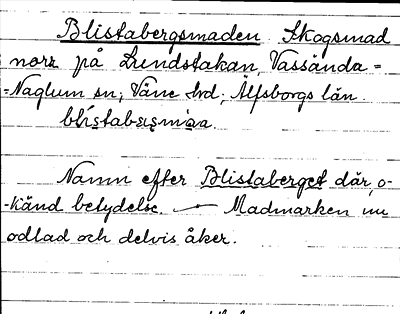 Blistabergsmaden Skogsmad
norr på Lundstakan, Vassända=
=Naglum sn; Väne hd, Älfsborgs län.
blístabærsmàa
Namn efter Blistaberget där, o-
-känd betydelse. — Madmarken nu
odlad och delvis åker.